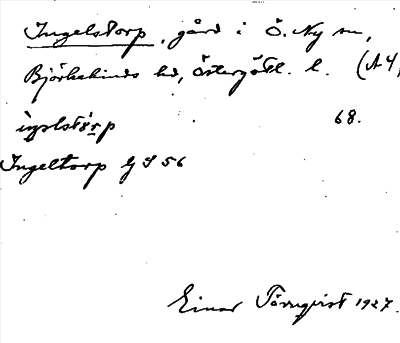 Ingelstorp, gård i Ö. Ny sn,
Björkekinds hd, Östergötl. l. (A4,
ìŋəlstò̤r̤p 68.
Ingeltorp GS 56
Einar Törnqvist 1927.